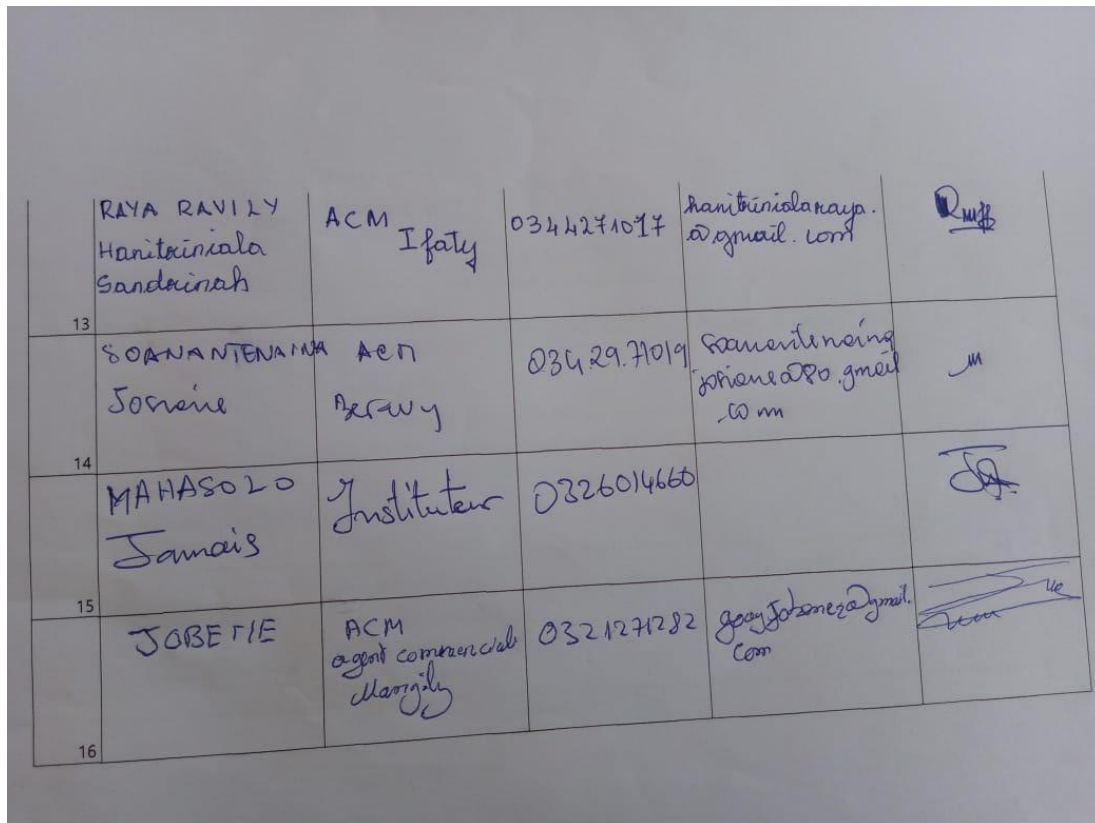 RAYA RAVILY
Hanitriniala
Sandrinah
ACM
Ifaty
0344271017
hanitriniala raya.
@gmail.com
13
SOANANTENAINA
Josiane
ACM
Beravy
034.29.71019
soanantenaina
josiane@80.gmail
.com
14
MAHASOLO
Jamais
Instituteur
0326014660
15
JOBETIE
ACM
agent commercial
Mangily
0321271282
@gmail.
com
16